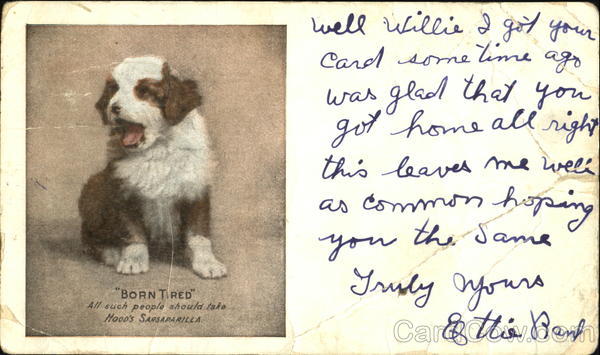 "BORN TIRED"
All such people should take
HOOD'S SARSAPARILLA.
Well Willie I got your
Card some time ago
was glad that you
got home all right
this leaves me well
as common hoping
you the same
Truly Yours
CardCow.com